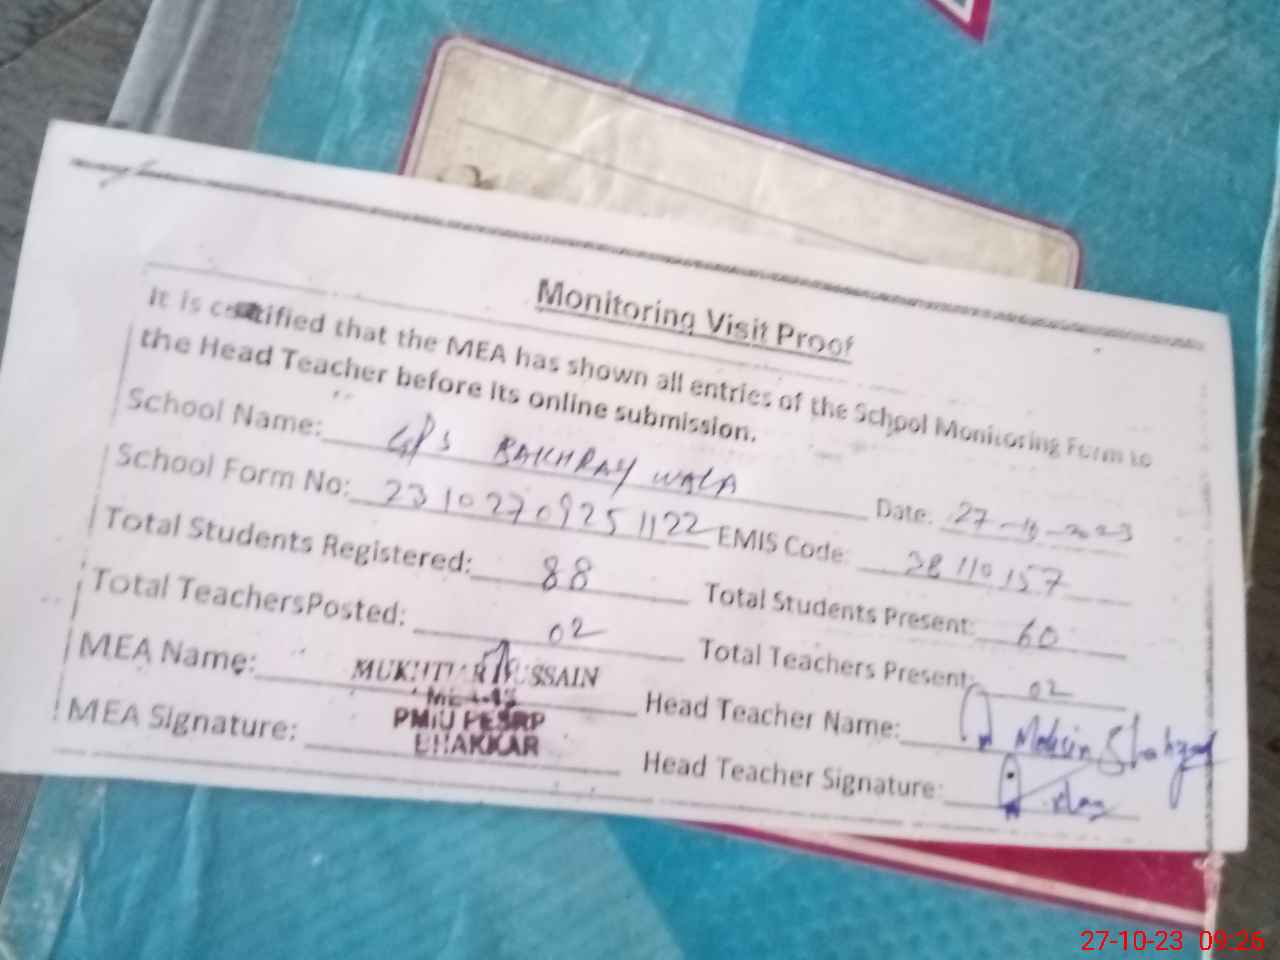 Monitoring Visit Proof
It is certified that the MEA has shown all entries of the School Monitoring Form to
the Head Teacher before its online submission.
School Name: GPS BAKHRAY WALA Date: 27-10-2023
School Form No: 23102709251122 EMIS Code: 38110157
Total Students Registered: 88 Total Students Present: 60
Total TeachersPosted: 02 Total Teachers Present: 02
MEA Name: MUKHTIAR HUSSAIN Head Teacher Name: Mohsin Shahzad
PMIU PESRP
BHAKKAR
MEA Signature: Head Teacher Signature:
27-10-23 09:26